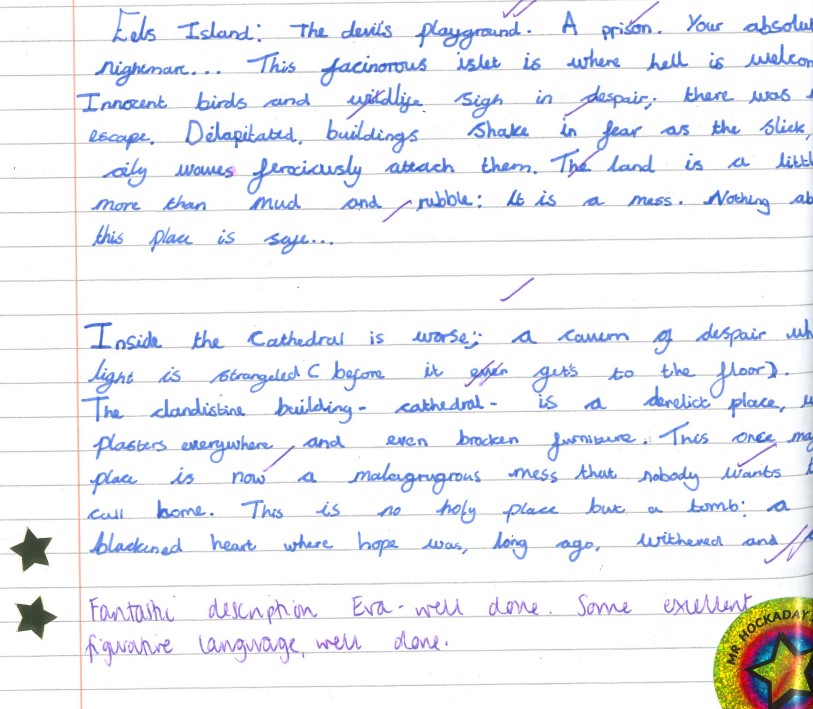 Eels Island: The devil's playground. A prison. Your absolut
nighemare... This facinorous islet is where hell is welcom
Innocent birds and wildlife sigh in despair; there was
escape. Delapitated, buildings shake in fear as the slick,
oily waves ferociously attach them. The land is a littl
more than mud and rubble: It is a mess. Nothing ab
this place is safe...
Inside the Cathedral is worse; a cavern of despair wh
light is strangeled (before it even gets to the floor).
The clandistine building - cathedral - is a derelict place,
plasters everywhere, and even brocken furniture. This once ma
place is now a malagrugrous mess that nobody wants t
call home. This is no holy place but a tomb: a
blackined heart where hope was, long ago, withered and
Fantastic description Eva - well done. Some excellent
figurative language, well done.
MR HOCKADAY